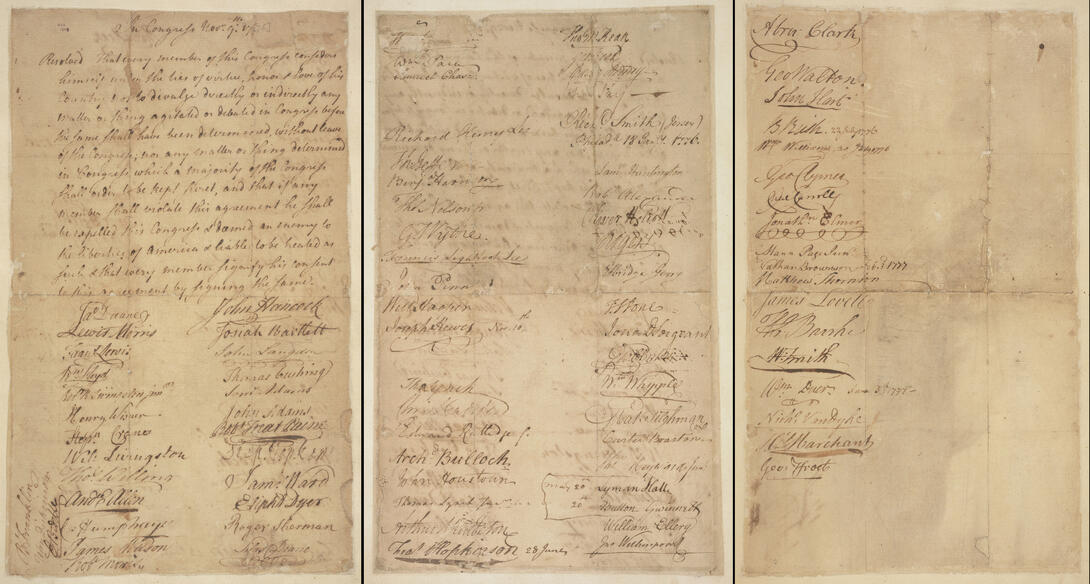 In Congress Nov. 9th 17
Resolved That every member of this Congress considers
himself under the ties of virtue, honor & love of his
Country not to divulge directly or indirectly any
matter or thing agitated or debated in Congress before
the same shall have been determined, without leave
of the Congress; nor any matter or thing determined
in Congress which a majority of the Congress
shall order to be kept secret, and that if any
member shall violate this agreement he shall
be expelled this Congress & deemed an enemy to
the liberties of America & liable to be treated as
such & that every member signify his consent
to this agreement by signing the same.
Jas Duane
Lewis Morris
Frans Lewis
Wm Floyd
Henry Wisner
Wil: Livingston
Thos Willing
Andw Allen
Humphreys
James Wilson
Robt Morris
John Hancock
Josiah Bartlett
John Langdon
Thomas Cushing
Saml Adams
John Adams
Robt Treat Paine
Step Hopkins
Sam: Ward
Elipht Dyer
Roger Sherman
Silas Deane
Wm Paca
Samuel Chase
Richard Henry Lee
Th Jefferson
Benj Harrison
Thos Nelson jr
G Wythe
Francis Lightfoot Lee
John Penn
Will Hooper
Joseph Hewes Nov. 10th
Tho Lynch
Edward Rutledge
Arch Bulloch
John Houstoun
Arthur Middleton
Fras Hopkinson 28 June
Thos M:Kean
Richd Smith (Jersey)
Philada 18 Jany 1776.
Sam Huntington
Robt Alexander
Oliver Wolcott
Elbridge Gerry
T Stone
Wm Whipple
Mat Tilghman
Carter Braxton
may 20th Lyman Hall
20th Button Gwinnett
William Ellery
Jno Witherspoon
Abra Clark
Geo Walton
John Hart
B Rush
Wm Williams
Geo Clymer
Jonathn Elmer
Mann Page Jun
Nathan Brownson
Matthew Thornton
James Lovell
Tho Burke
W. Smith
Wm Duer
Nichs VanDyke
H Marchant
Geo: Frost